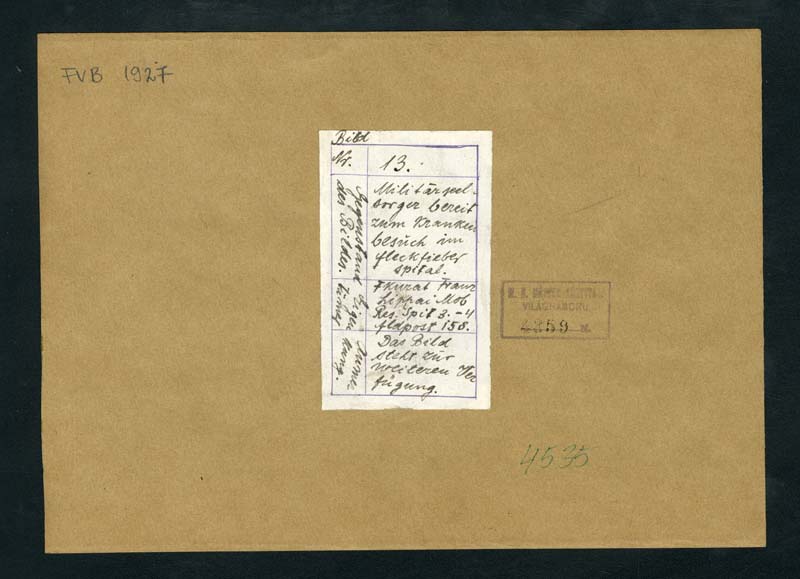 FVB 1927
Bild
Nr. 13.
Gegenstand
des Bildes.
Militärseel-
sorger bereit
zum Kranken
besuch im
fleckfieber
spital.
Eigen
tümer
Fkurat Franz
Lippai Mob
Res. Spit 3.-4
fldpost 158.
Anmer
kung.
Das Bild
steht zur
weiteren Ver
fügung.
VILÁGHÁBORÚ
4259
4535